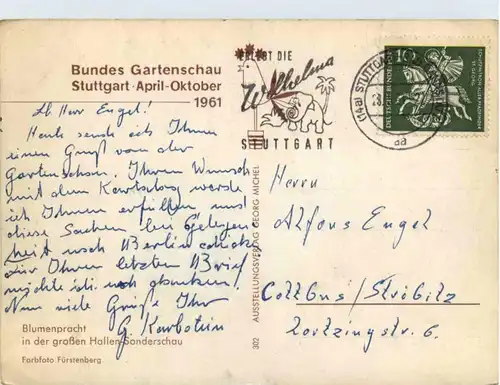 Bundes Gartenschau
Stuttgart · April-Oktober
1961
Lb. Herr Engel!
Heute sende ich Ihnen
einen Gruß von der
Gartenschau. Ihren Wunsch
mit dem werde
ich Ihnen erfüllen und
diese Sachen bei Gelegen
heit nach Berlin
Für Ihren letzten Brief
möchte ich noch danken.
Nun viele Grüße Ihr
G.
Blumenpracht
in der großen Hallen-Sonderschau
Farbfoto Fürstenberg
302 AUSSTELLUNGSVERLAG GEORG MICHEL
ERLEBT DIE
Wilhelma
STUTTGART
(14a) STUTTGART
aa
10
DEUTSCHE BUNDESPOST
Herrn
Alfons Engel
Cottbus/Ströbitz
Lortzingstr. 6.